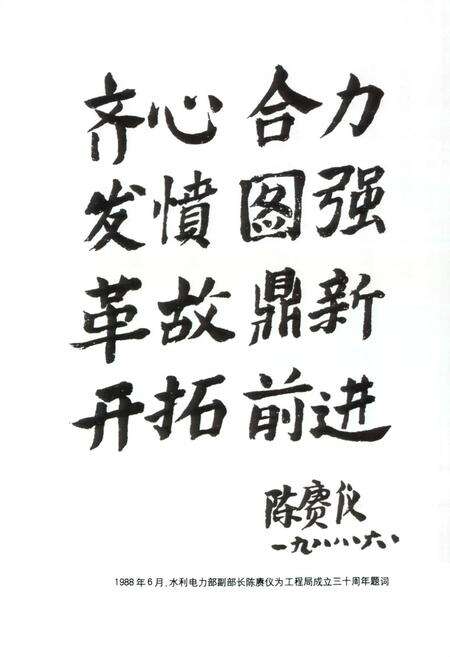 齐心合力
发憤图强
革故鼎新
开拓前进
陈赓仪
一九八八六八
1988年6月,水利电力部副部长陈赓仪为工程局成立三十周年题词